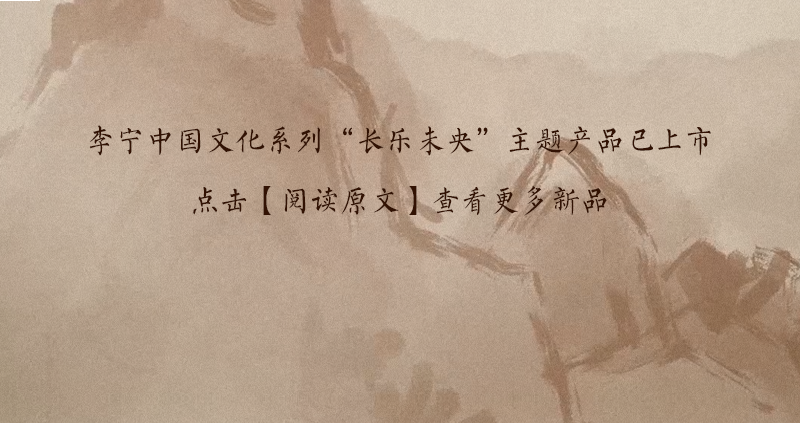 李宁中国文化系列“长乐未央”主题产品已上市
点击【阅读原文】查看更多新品